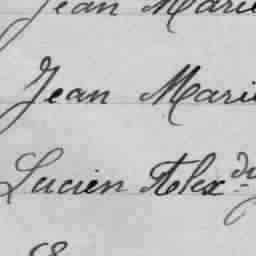 Jean Marie
Jean Marie
Lucien Alex dr